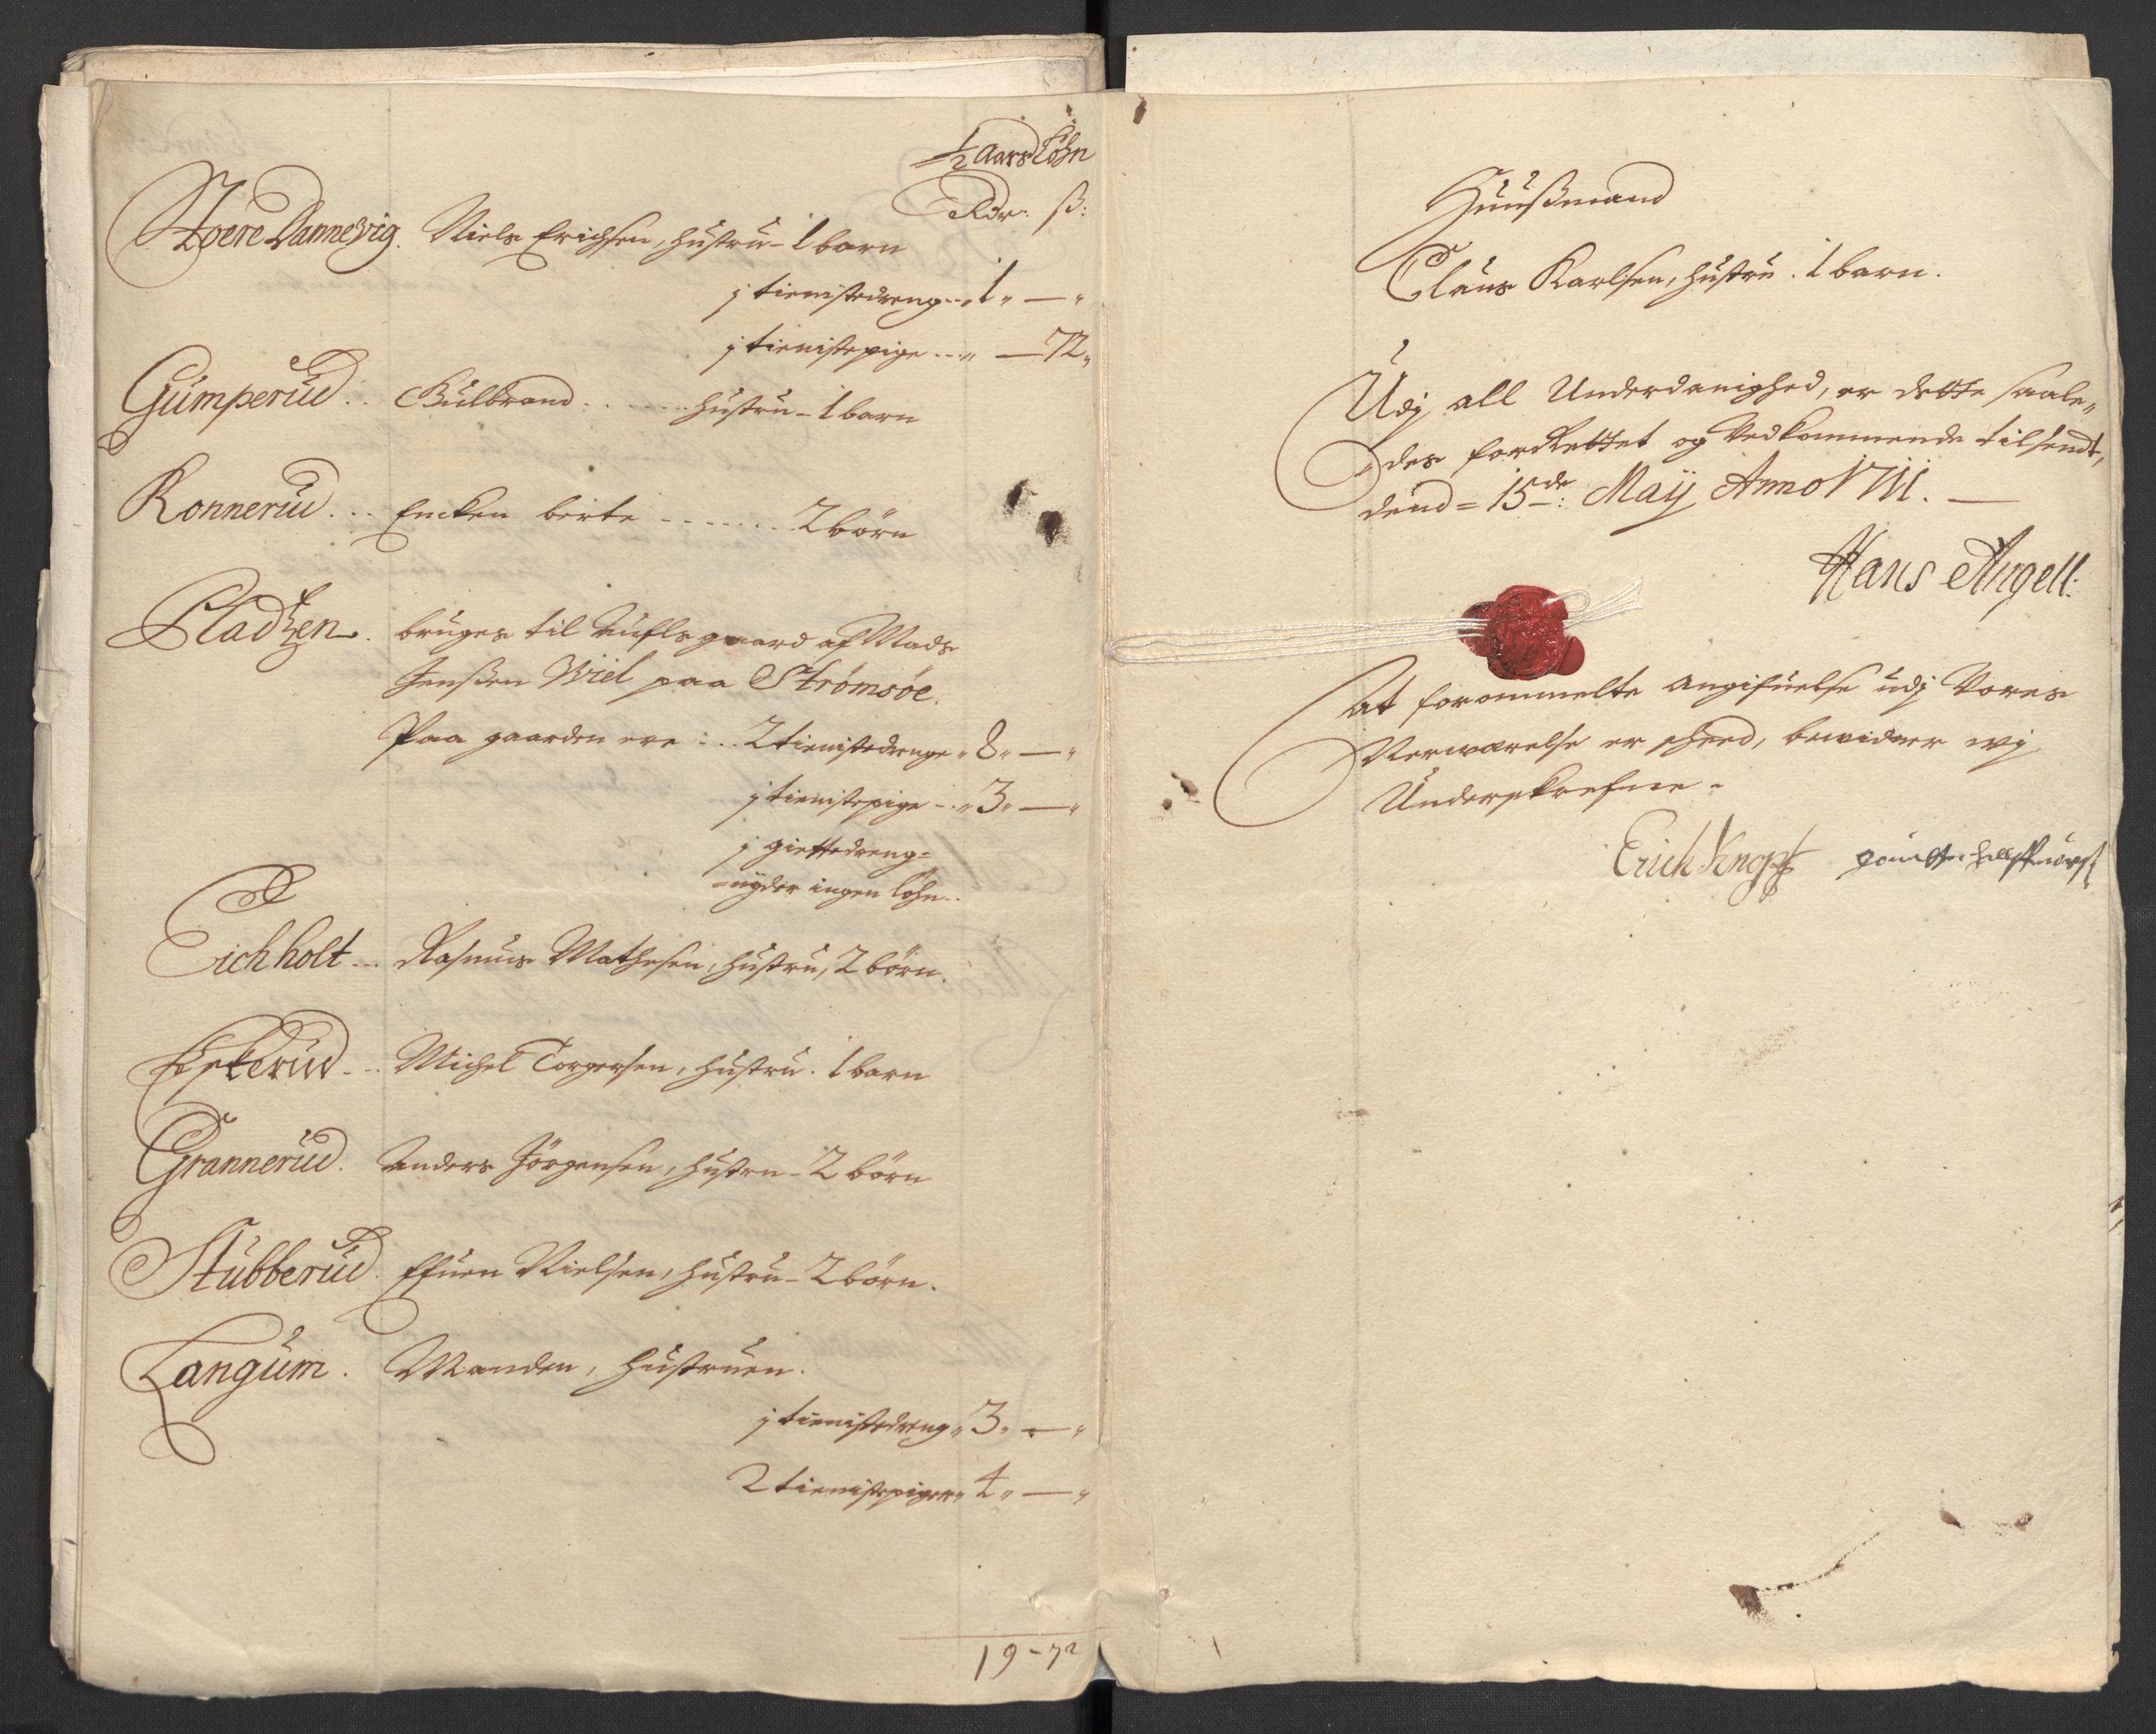 1/2 Aars Löhn
Rdr: ß:
Store Dannevig. Niels Erichsen, hustru - 1 barn
j tienistedreng - - „ 1 „ — „
j tienistepige - - „ — 72 „
Gumperud . . Gulbrand . . . . . . hustru - 1 barn
Konnerud . . . Encken birte - - - - - - . . 2 börn
Pladtzen . bruges til aufls gaard af Mads
Jenßen Wiel paa Strömsöe.
Paa gaarden ere : . . 2 tienistedrenge „ 8 „ — „
j tienistepige - . „ 3 „ — „
j giettedreng =
= nyder ingen löhn - .
Eichholt - . . Rasmus Mathesen, hustru, 2 börn.
Eskerud - . . Michel Torgersen, hustru . 1 barn
Grannerud . Anders Jörgensen, hustru - 2 börn
Stubberud . Efuen Nielsen, hustru - 2 börn.
Langum . Manden, hustruen.
j tienistedreng „ 3 „ — „
2 tienistepiger „ 4 „ — „
19 - 72
Huußmand
Claus Karlsen, hustru . 1 barn.
Udj all Underdanighed, er dette saale„
„des forrettet og Vedkommende tilsendt,
dend = 15de: Maij Anno 1711. —
Hans Angell:
At forommelte angifuelse udj Vores
Nerwærelse er skeed, bewidner wj
Underskrefne -
Erich